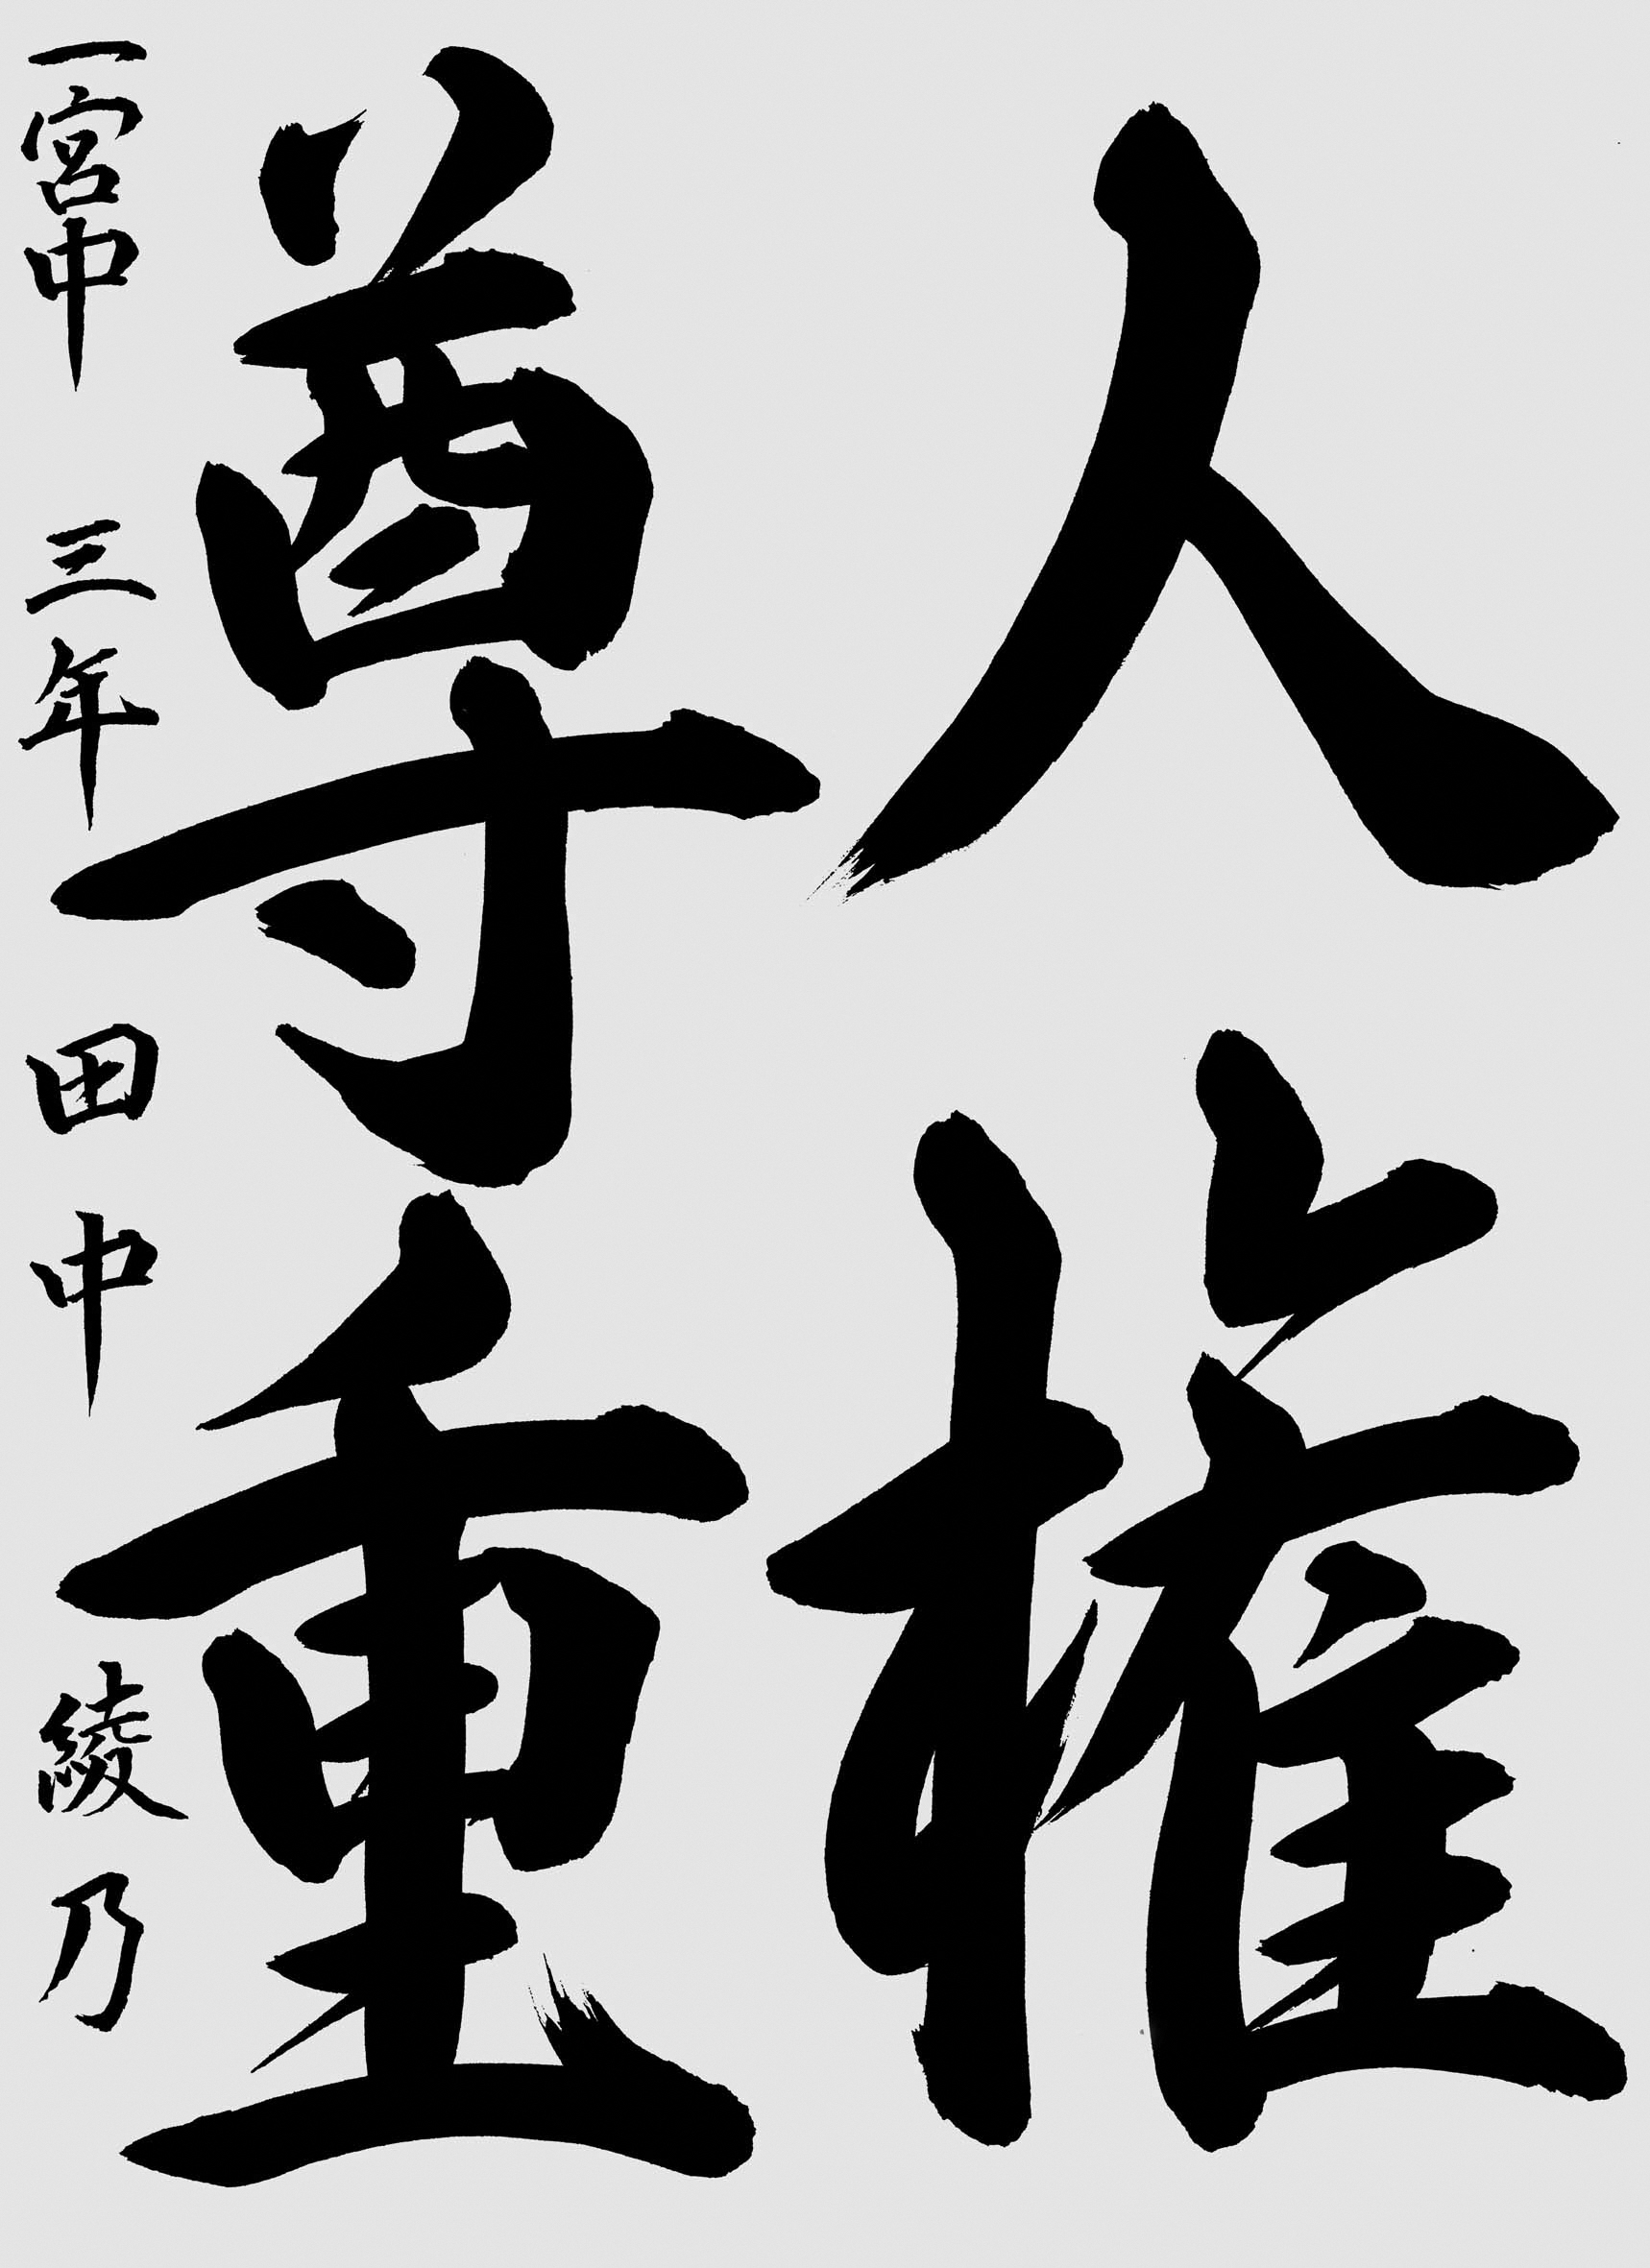 人権
尊重
一宮中 三年 田中 綾乃